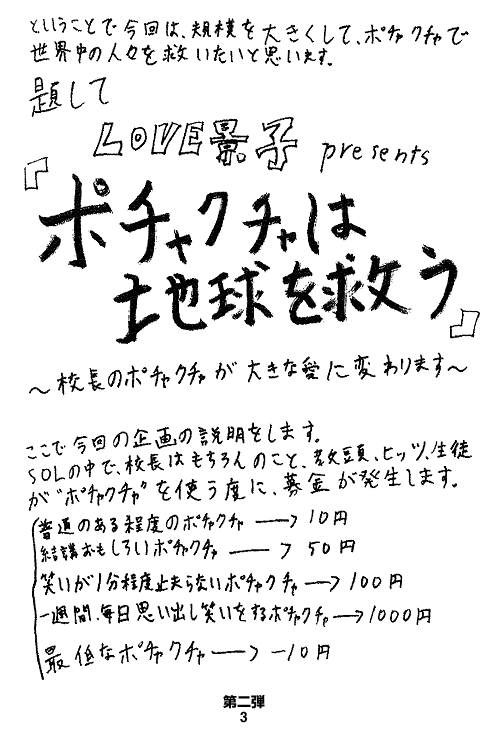 ということで今回は、規模を大きくして、ポチャクチャで
世界中の人々を救いたいと思います。
題して
LOVE景子 presents
『ポチャクチャは
地球を救う』
～校長のポチャクチャが大きな愛に変わります～
ここで今回の企画の説明をします。
SOLの中で、校長はもちろんのこと、教頭、ヒッツ、生徒
が“ポチャクチャ”を使う度に、募金が発生します。
普通のある程度のポチャクチャ → 10円
結講おもしろいポチャクチャ → 50円
笑いが1分程度止まらないポチャクチャ → 100円
一週間、毎日思い出し笑いをするポチャクチャ → 1000円
最低なポチャクチャ → -10円
第二弾
3